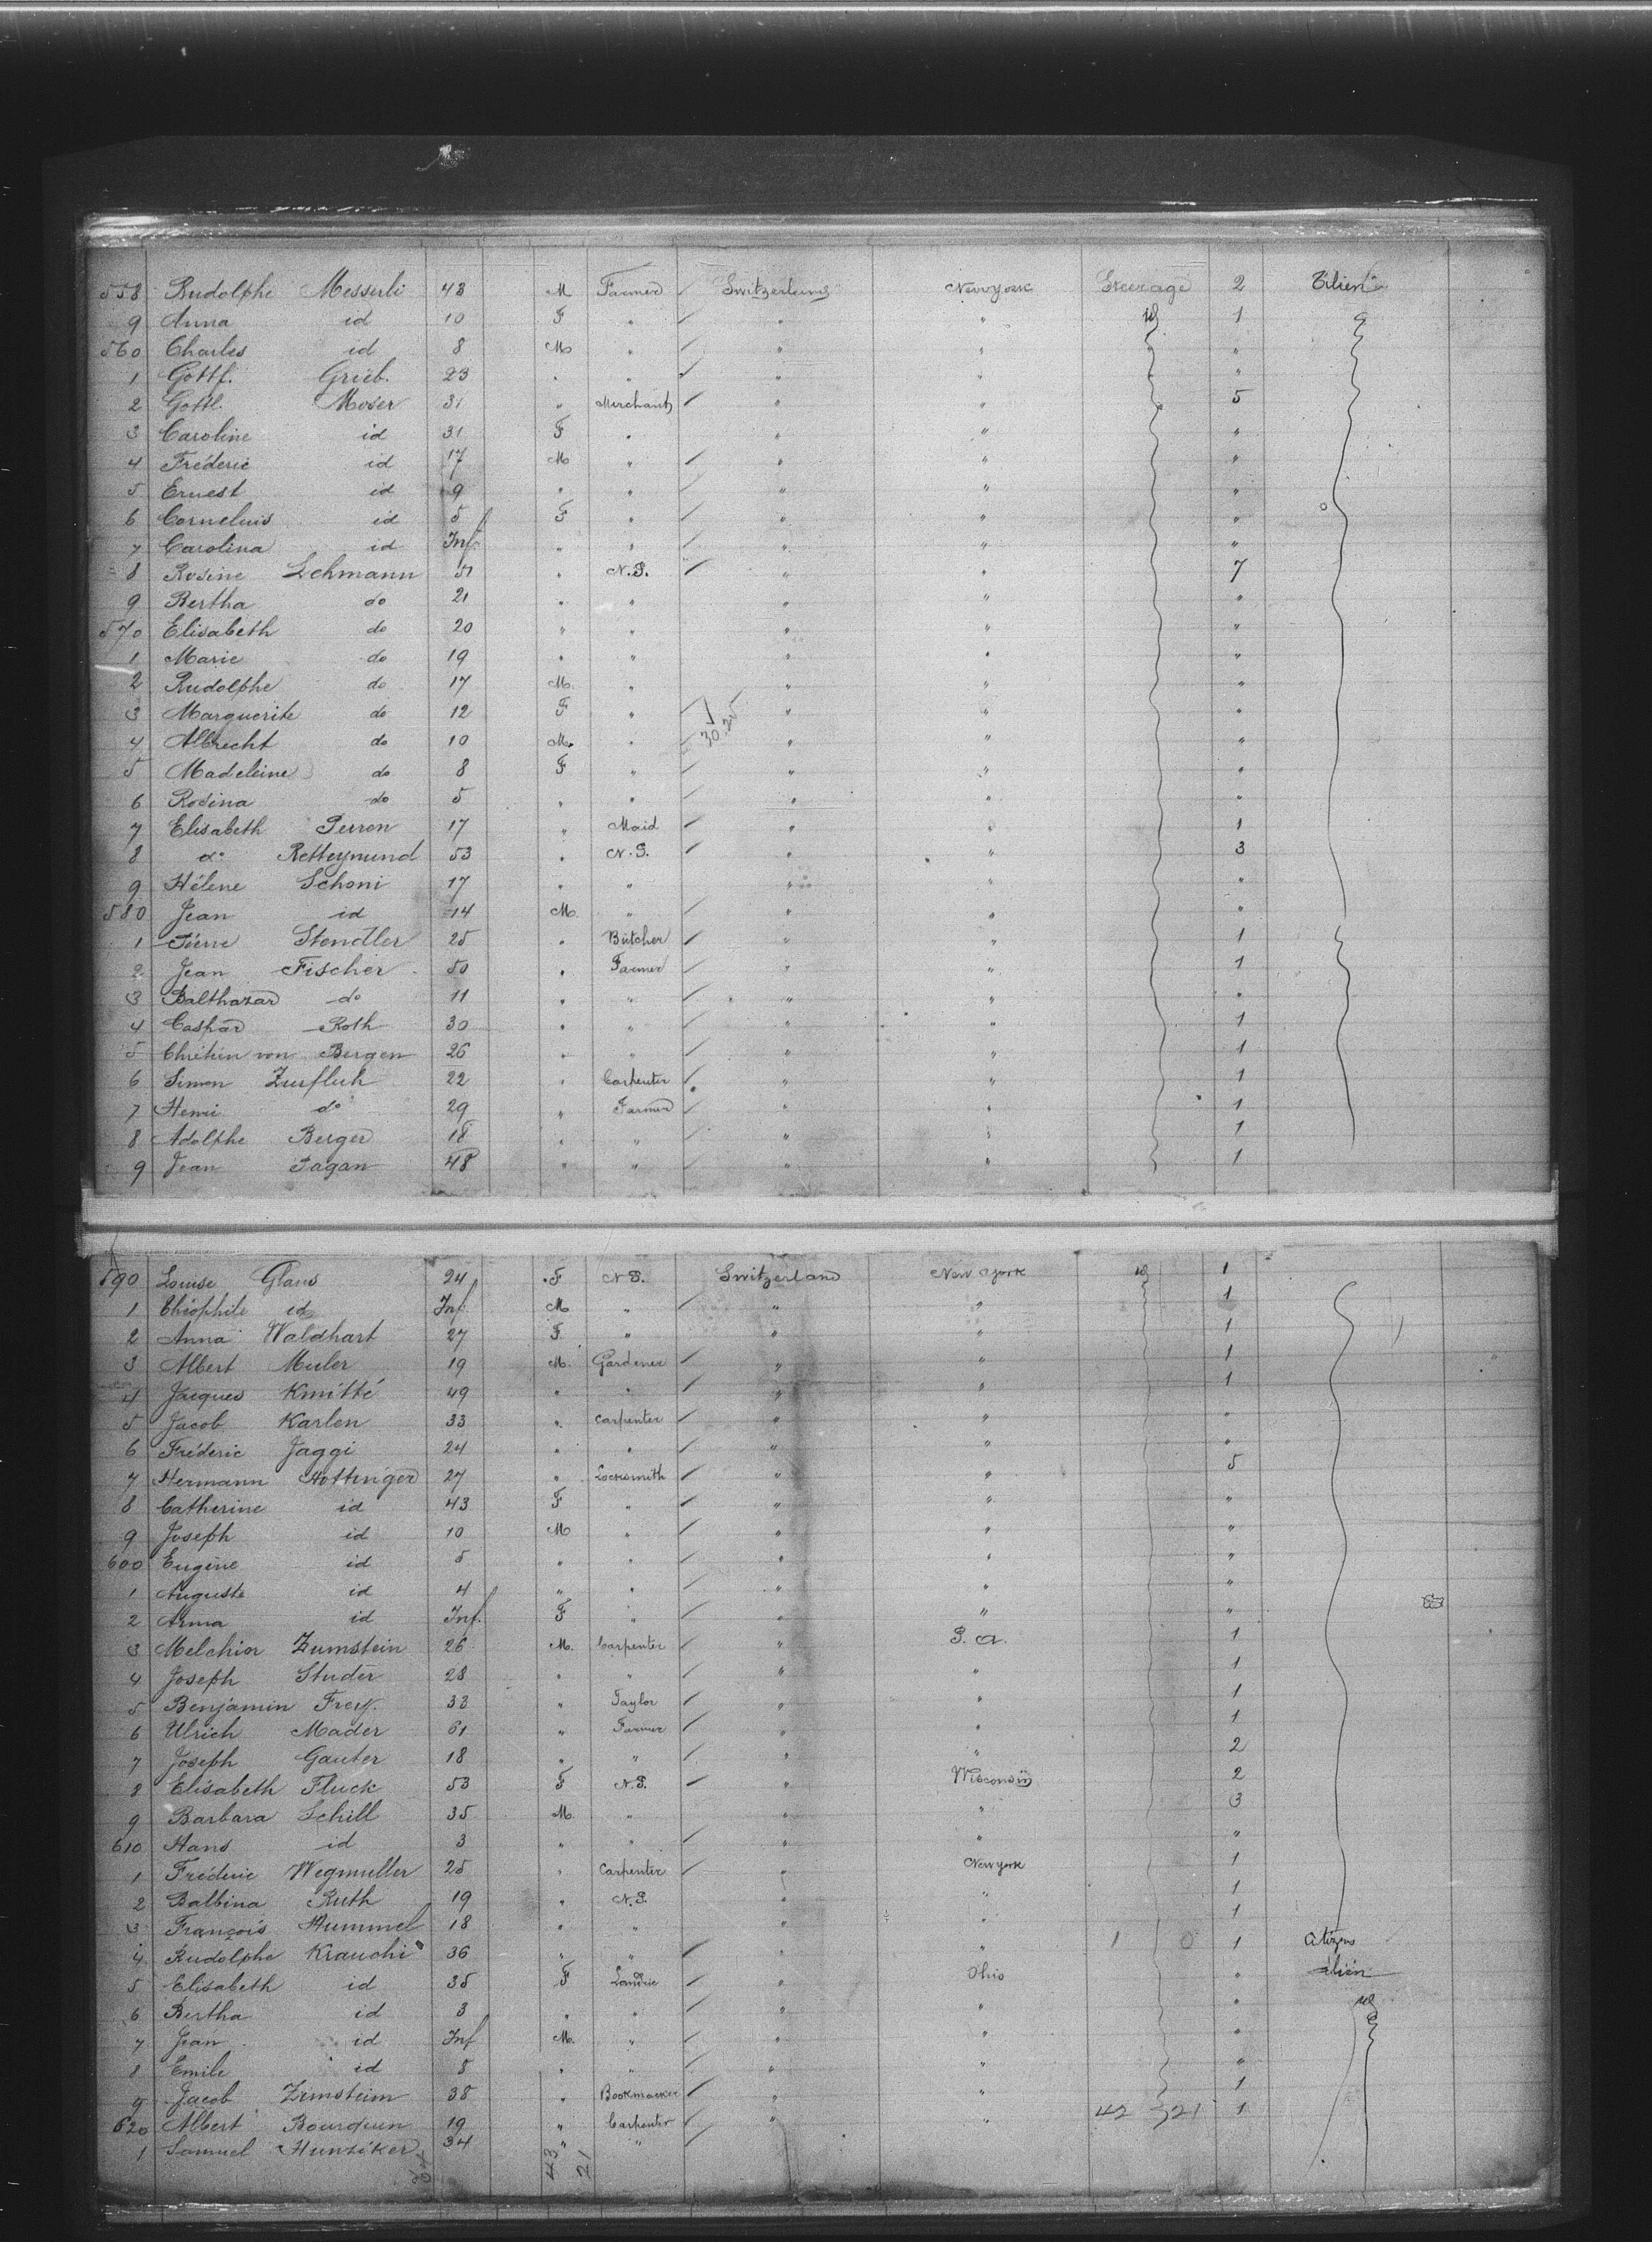 558 Rudolphe Messerli 43 M Farmer Switzerland New york Steerage 2 Alien
9 Anna id 10 F " " " id 1
560 Charles id 8 M " " " " "
1 Gottf. Grieb. 23 " " " " "
2 Gottl. Moser 31 " Merchant " " 5
3 Caroline id 31 F " " " "
4 Fréderic id 17 M " " " "
5 Ernest id 9 " " " " "
6 Corneluis id 5 F " " " "
7 Carolina id Inf. " " " " "
8 Rosine Lehmann 51 " N.P. " " 7
9 Bertha do 21 " " " " "
570 Elisabeth do 20 " " " " "
1 Marie do 19 " " " " "
2 Rudolphe do 17 M. " " " "
3 Marguerite do 12 F " " " "
4 Albrecht do 10 M. " " " "
5 Madeleine do 8 F " " " "
6 Rosina do 5 " " " " "
7 Elisabeth Perron 17 " Maid " " 1
8 do Retteymund 53 " N.P. " " 3
9 Hélene Schoni 17 " " " " "
580 Jean id 14 M. " " " "
1 Pierre Stendler 25 " Butcher " " 1
2 Jean Fischer 50 " Farmer " " 1
3 Balthazar do 11 " " " " "
4 Caspar Roth 30 " " " " 1
5 Chrétien von Bergen 26 " " " " 1
6 Simon Zurfluh 22 " Carpenter " " 1
7 Henri do 29 " Farmer " " 1
8 Adolphe Berger 18 " " " " 1
9 Jean Fagan 48 " " " " 1
590 Louise Glaus 24 F N.P. Switzerland New York id 1
1 Théophile id Inf. M " " " 1
2 Anna Waldhart 27 F " " " 1
3 Albert Muler 19 M. Gardener " " 1
4 Jacques Kmitté 49 " " " " 1
5 Jacob Karlen 33 " Carpenter " " "
6 Fréderic Jaggi 24 " " " " "
7 Hermann Hottinger 27 " Locksmith " " 5
8 Catherine id 43 F " " " "
9 Joseph id 10 M " " " "
600 Eugène id 5 " " " " "
1 Auguste id 4 " " " " "
2 Anna id Inf. F " " " "
3 Melchior Zumstein 26 M. Carpenter " P. a. 1
4 Joseph Studer 28 " " " " 1
5 Benjamin Frey. 33 " Taylor " " 1
6 Ulrich Mader 61 " Farmer " " 1
7 Joseph Gauter 18 " " " " 2
8 Elisabeth Fluck 53 F N.P. " Wisconsin 2
9 Barbara Schill 35 M. " " " 3
610 Hans id 3 " " " " "
1 Fréderic Wegmuller 25 " Carpenter " New york 1
2 Balbina Ruth 19 " N.P. " " 1
3 François Hummel 18 " " " " 1
4 Rudolphe Krauchi 36 " " " " 1 0 1 Citizens
5 Elisabeth id 35 F " Ohio " Alien
6 Bertha id 3 " " " " " id
7 Jean id Inf M. " " " "
8 Emile id 8 " " " " "
9 Jacob Zimsteim 38 " Bookmacker " " 1
620 Albert Bourquin 19 " Carpenter " " 42 21 1
1 Samuel Hunziker 34 " "
43 21